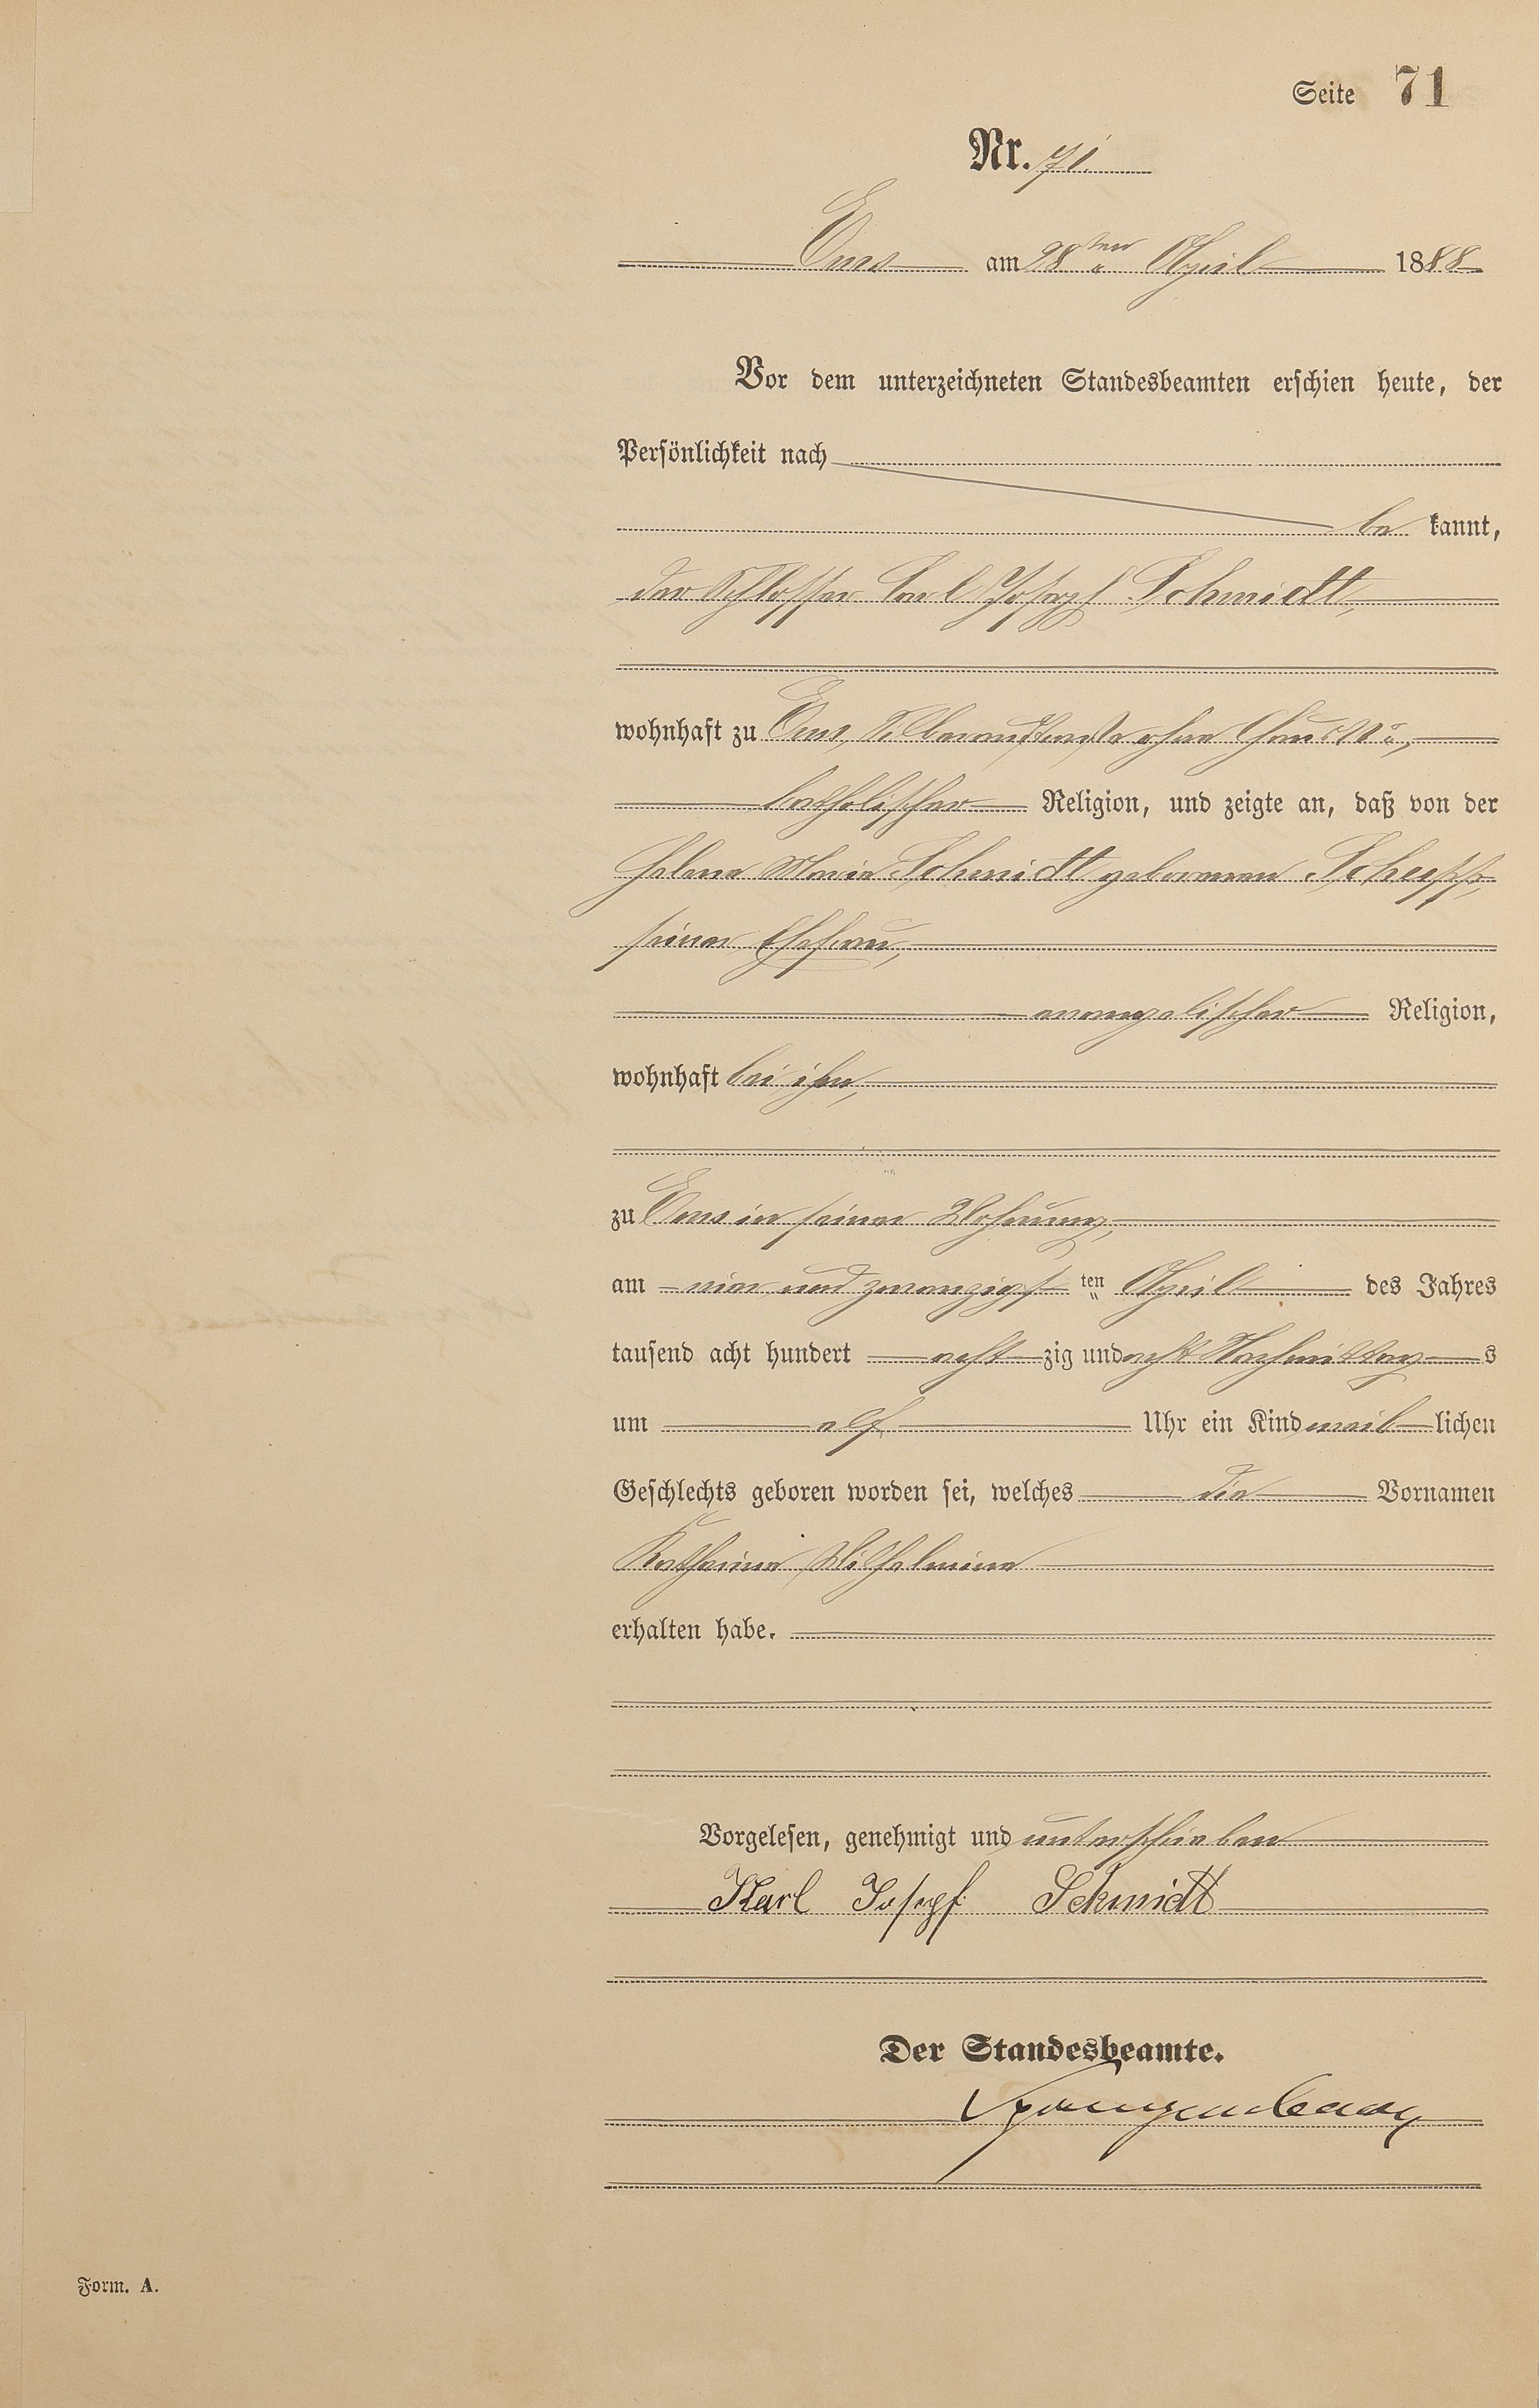 Seite 71
Nr. 71.
Ems am 28ten April 1888
Vor dem unterzeichneten Standesbeamten erschien heute, der
Persönlichkeit nach
be kannt,
der Schlosser Karl Joseph Schmidt,
wohnhaft zu Ems, Silberaustraße ohne Haus No,
katholischer Religion, und zeigte an, daß von der
Helena Maria Schmidt geborenen
seiner Ehefrau,
evangelischer Religion,
wohnhaft bei ihm,
zu Ems in seiner Wohnung,
am vier und zwanzigsten April des Jahres
tausend acht hundert acht zig und acht Nachmittag s
um elf Uhr ein Kind weib lichen
Geschlechts geboren worden sei, welches die Vornamen
Katharina Wilhelmine
erhalten habe.
Vorgelesen, genehmigt und unterschrieben
Karl Josepf Schmidt
Der Standesbeamte.
Form. A.